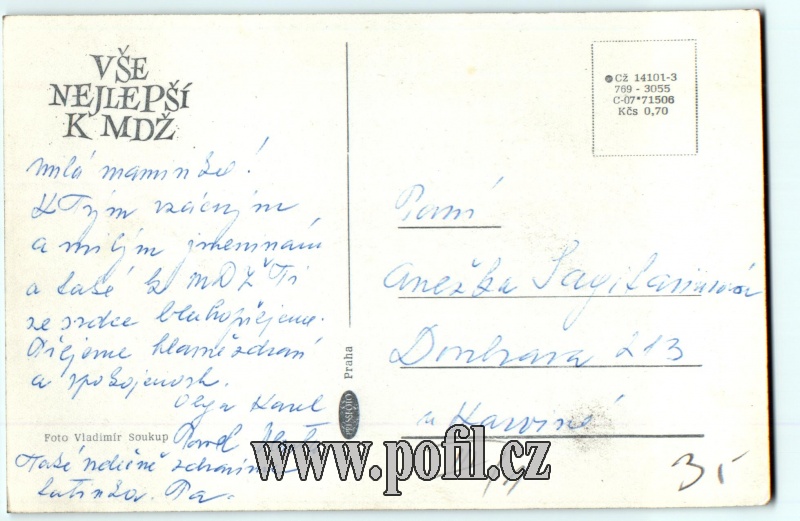 VŠE
NEJLEPŠÍ
K MDŽ
Milá maminko!
K Tvým vzácným
a milým jmeninám
a také k MDŽ Ti
ze srdce blahopřejeme.
Přejeme hlavně zdraví
a spokojenost.
Olga Karel
Pavel
Také srdečně zdravíme
tatínka. Pa.
Foto Vladimír Soukup
PRESSFOTO
Praha
Cž 14101-3
769 - 3055
C-07*71506
Kčs 0,70
Paní
Anežka Sagitariusová
Doubrava 213
u Karviné
www.pofil.cz